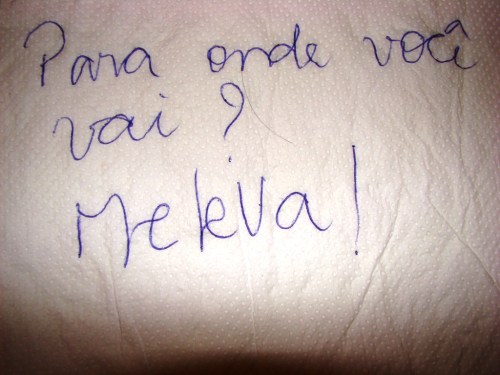 Para onde você
vai?
Me leva!